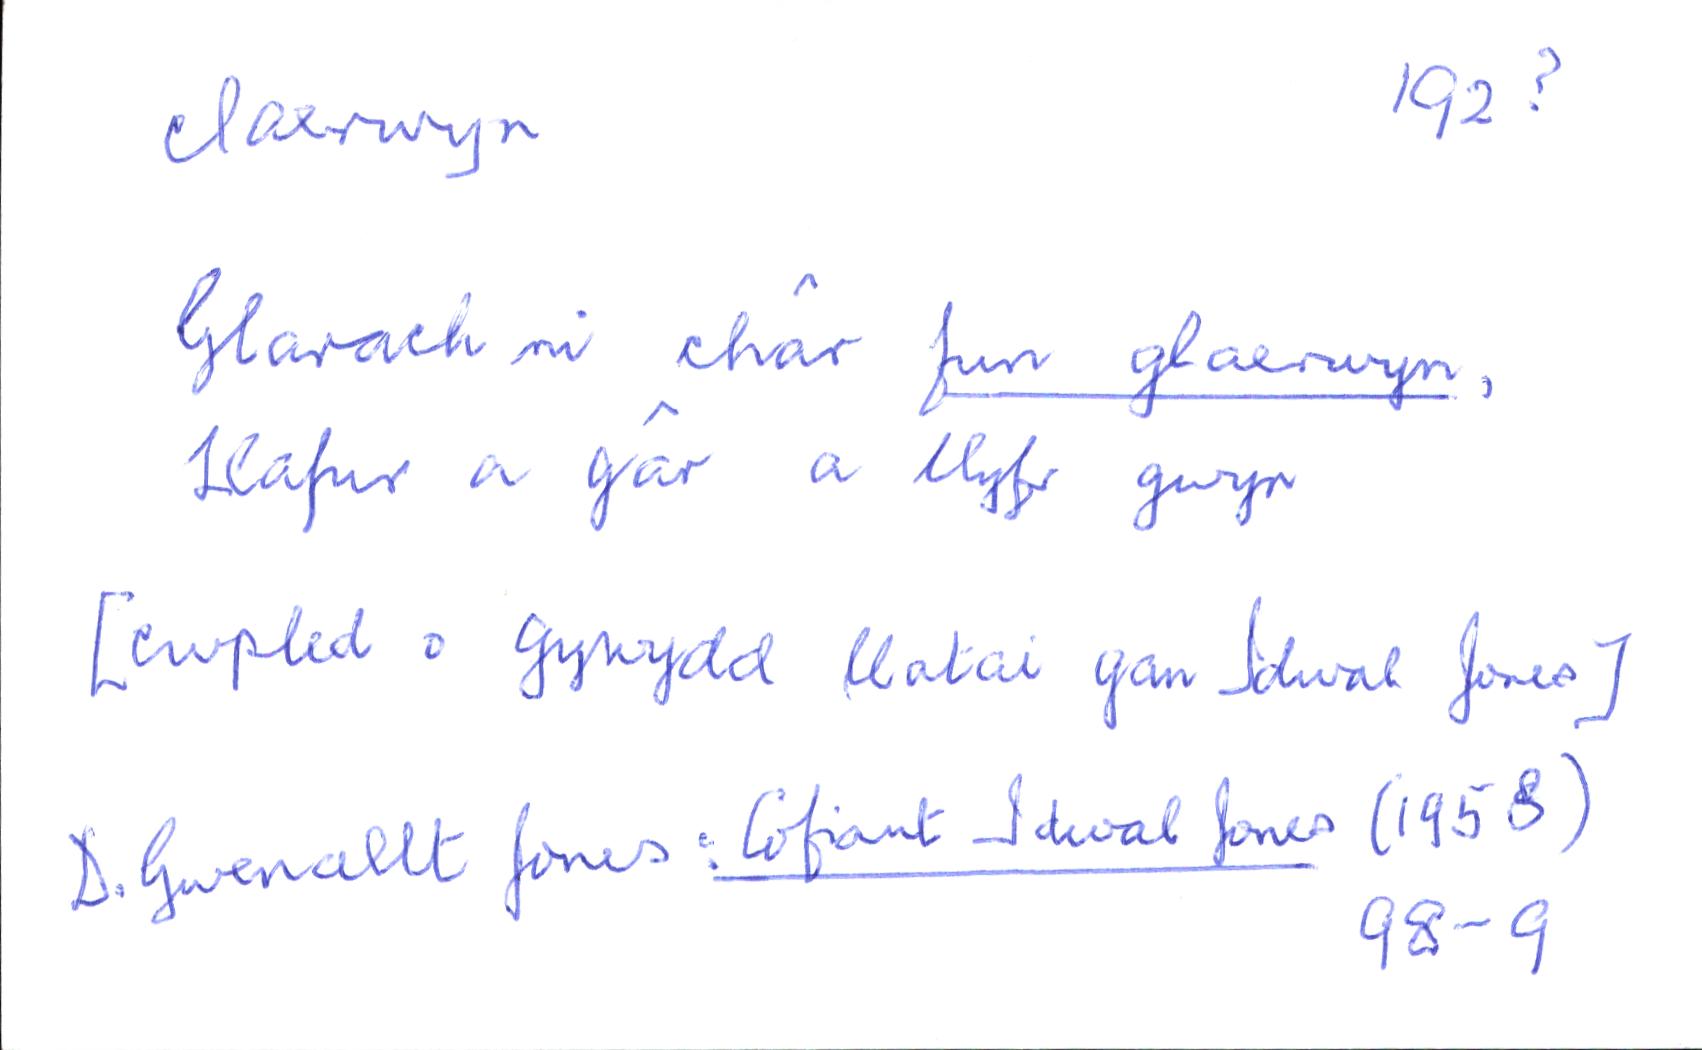 claerwyn 192?
Glarach ni châr fun glaerwyn,
Llafur a gâr a llyfr gwyn
[cwpled o Gywydd llatai gan Idwal Jones]
D. Gwenallt Jones: Cofiant Idwal Jones (1958)
98-9